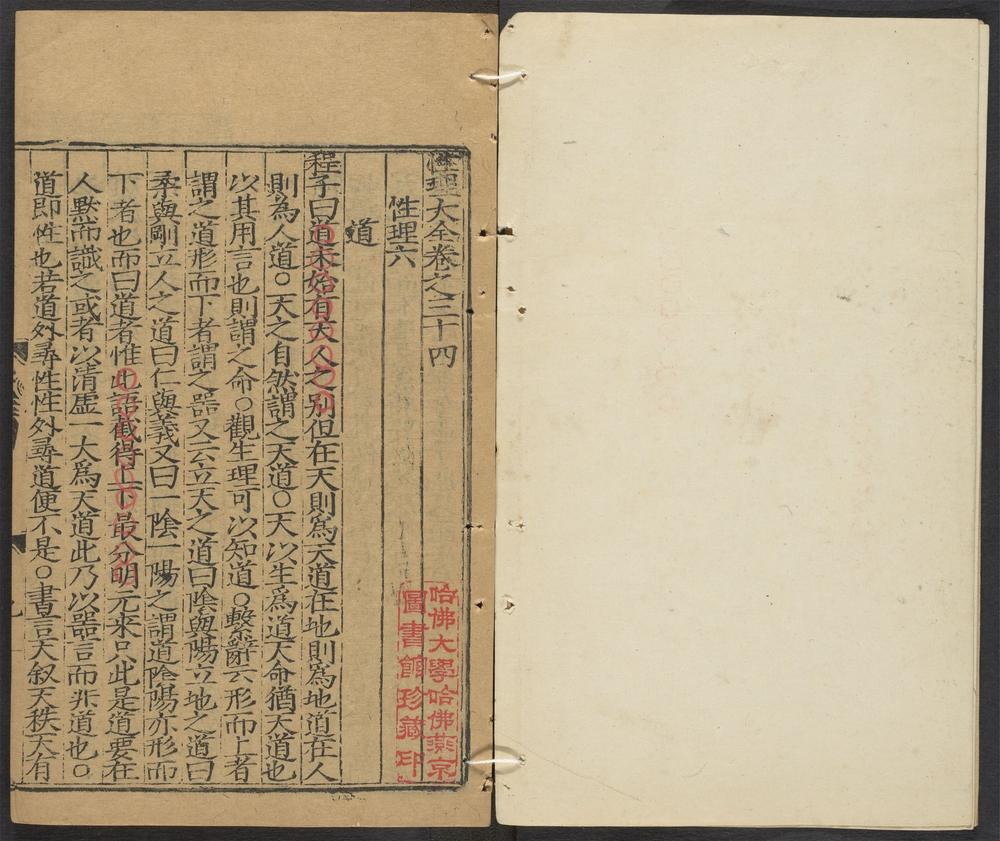 性理大全卷之三十四
性理六
道
程子曰道未始有天人之別但在天則爲天道在地則爲地道在人
則為人道○天之自然謂之天道○天以生爲道天命猶天道也
以其用言也則謂之命○觀生理可以知道○繫辭云形而上者
謂之道形而下者謂之器又云立天之道曰陰與陽立地之道曰
柔與剛立人之道曰仁與義又曰一陰一陽之謂道陰陽亦形而
下者也而曰道者惟此語截得上下最分明元來只此是道要在
人默而識之或者以清虛一大爲天道此乃以器言而非道也○
道即性也若道外尋性性外尋道便不是○書言天叙天秩天有
哈佛大學哈佛燕京
圖書館珍藏印